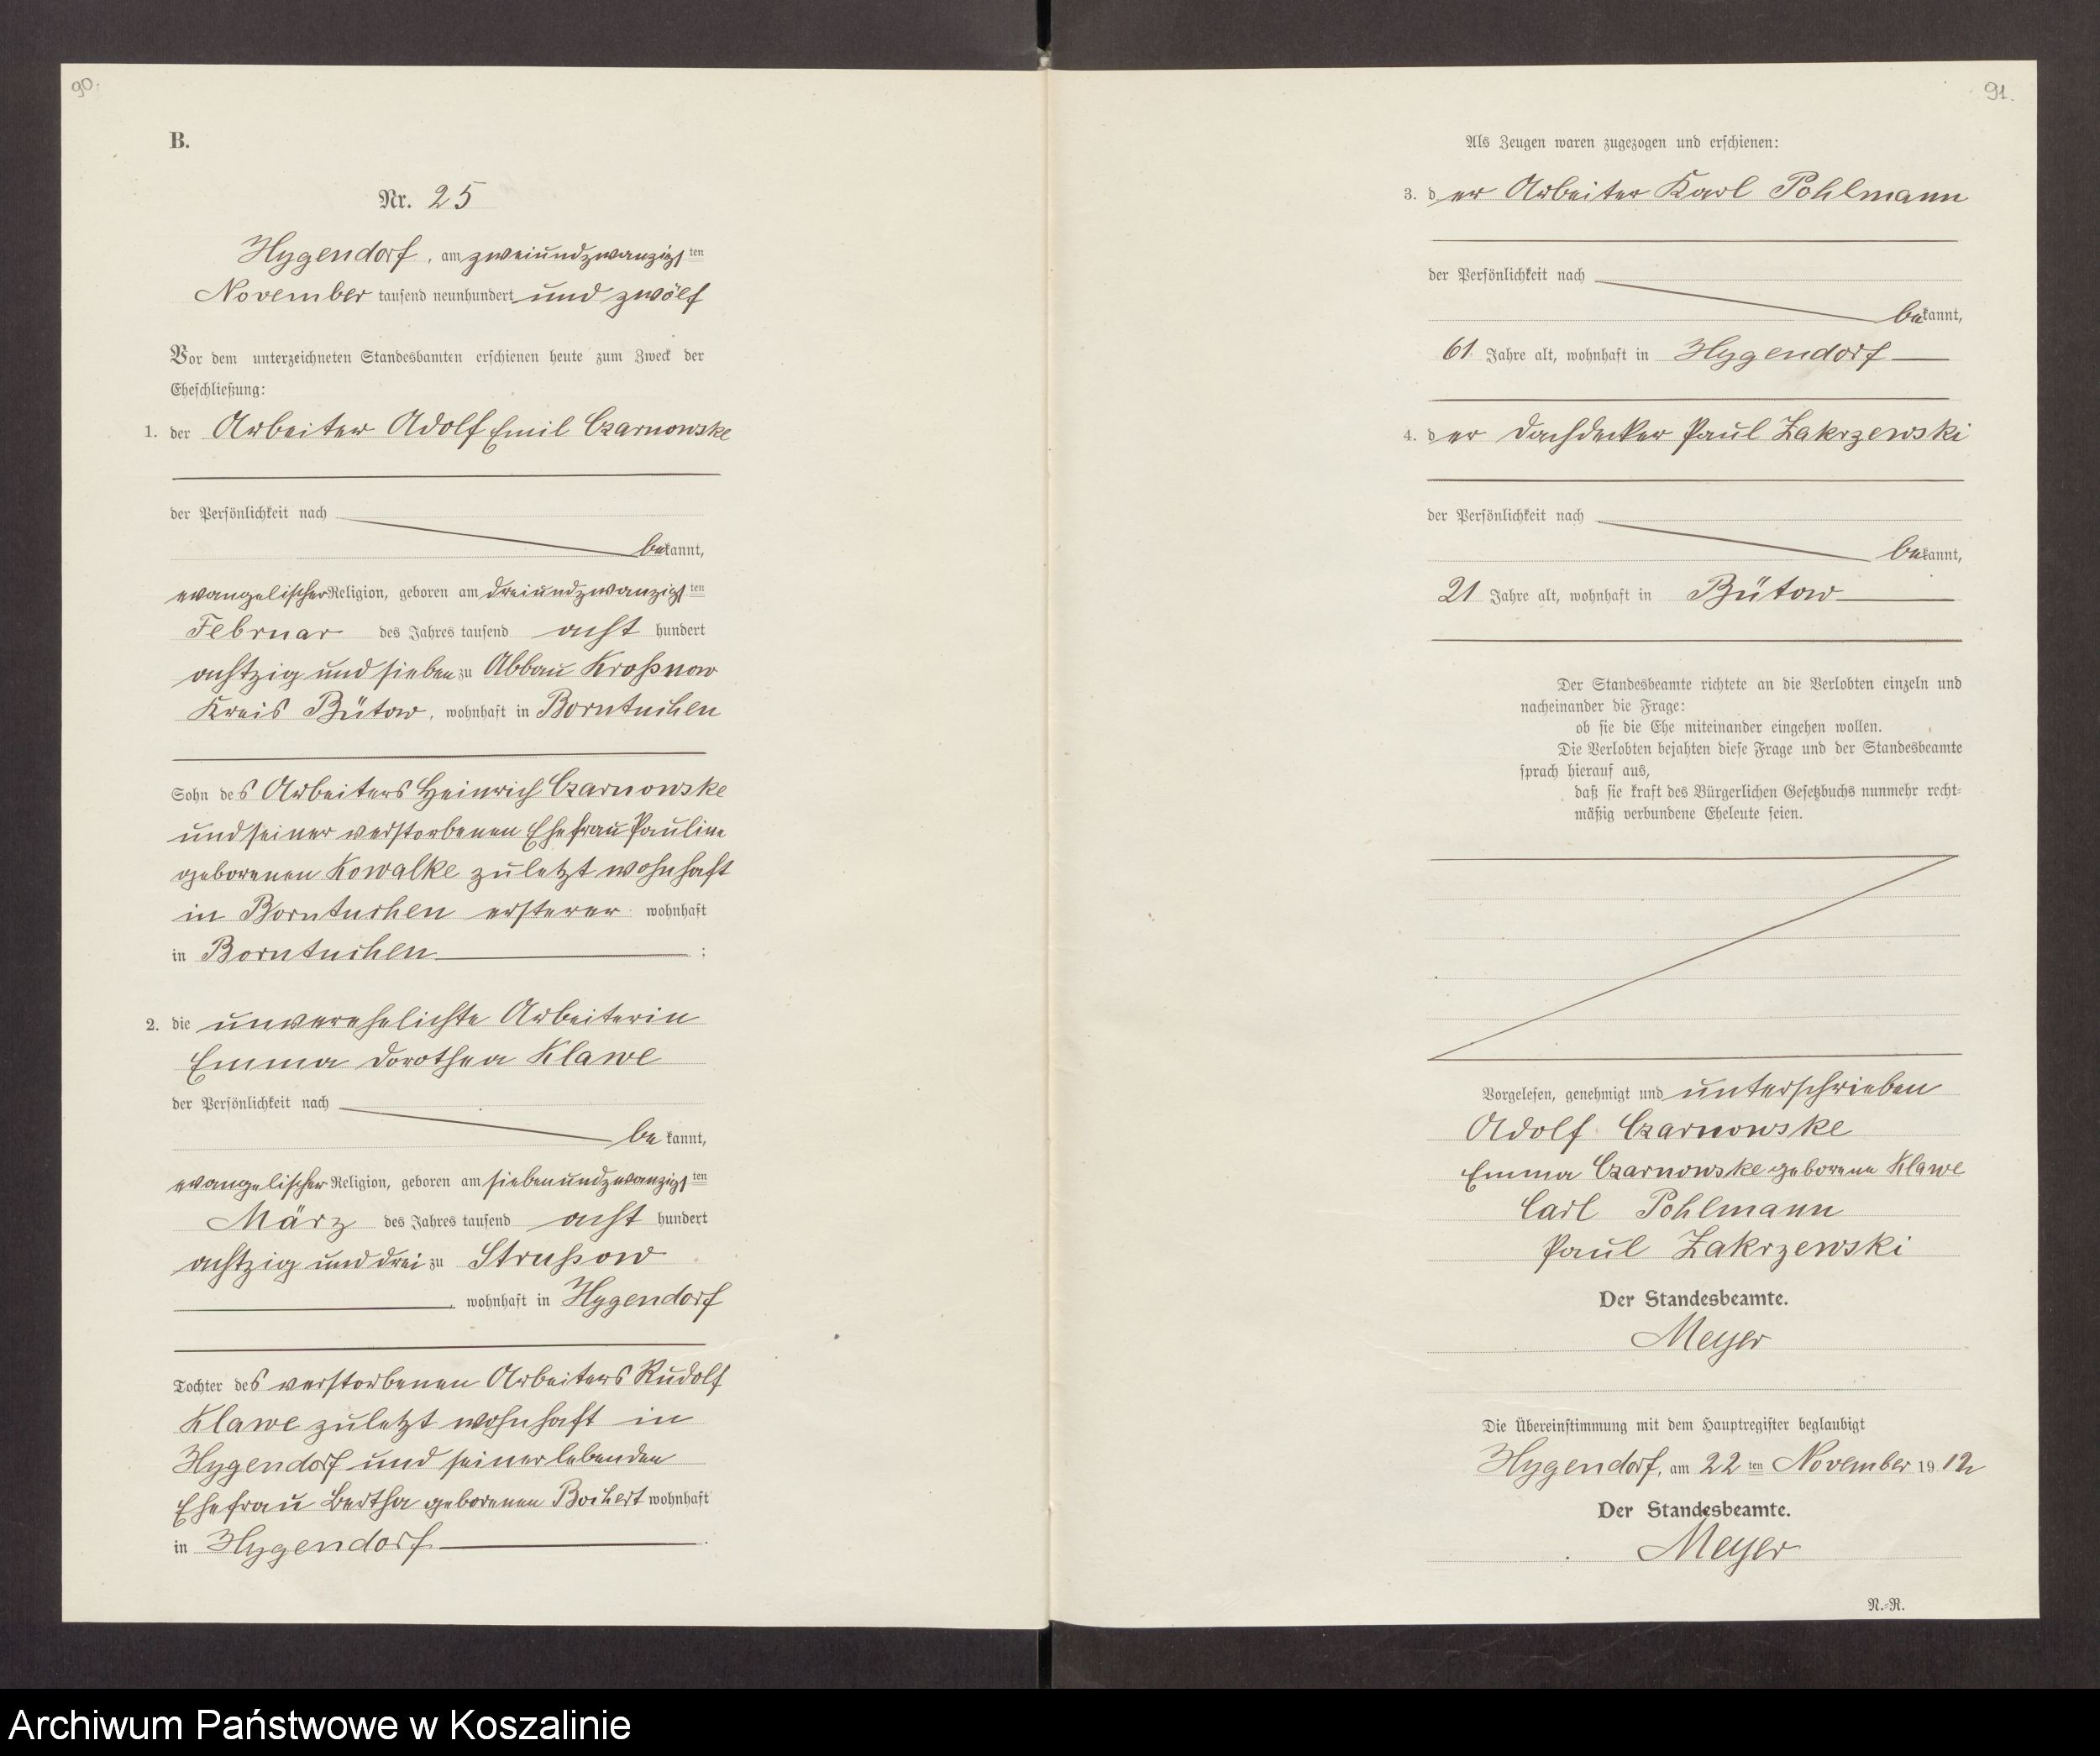 90.
B.
Nr. 25
Hygendorf, am zweiundzwanzigsten
November tausend neunhundert und zwölf
Vor dem unterzeichneten Standesbamten erschienen heute zum Zweck der
Eheschließung:
1. der Arbeiter Adolf Emil Czarnowske
der Persönlichkeit nach
bekannt,
evangelischer Religion, geboren am dreiundzwanzigsten
Februar des Jahres tausend acht hundert
achtzig und sieben zu Abbau Kroßnow
Kreis Bütow, wohnhaft in Borntuchen
Sohn des Arbeiters Heinrich Czarnowske
und seiner verstorbenen Ehefrau Pauline
geborenen Kowalke zuletzt wohnhaft
in Borntuchen ersterer wohnhaft
in Borntuchen ;
2. die unverehelichte Arbeiterin
Emma Dorothea Klawe
der Persönlichkeit nach
bekannt,
evangelischer Religion, geboren am siebenundzwanzigsten
März des Jahres tausend acht hundert
achtzig und drei zu Strussow
, wohnhaft in Hygendorf
Tochter des verstorbenen Arbeiters Rudolf
Klawe zuletzt wohnhaft in
Hygendorf und seiner lebenden
Ehefrau Bertha geborenen Bochert wohnhaft
in Hygendorf .
91.
Als Zeugen waren zugezogen und erschienen:
3. der Arbeiter Karl Pohlmann
der Persönlichkeit nach
bekannt,
61 Jahre alt, wohnhaft in Hygendorf
4. der Dachdecker Paul Zakrzewski
der Persönlichkeit nach
bekannt,
21 Jahre alt, wohnhaft in Bütow
Der Standesbeamte richtete an die Verlobten einzeln und
nacheinander die Frage:
ob sie die Ehe miteinander eingehen wollen.
Die Verlobten bejahten diese Frage und der Standesbeamte
sprach hierauf aus,
daß sie kraft des Bürgerlichen Gesetzbuchs nunmehr recht-
mäßig verbundene Eheleute seien.
Vorgelesen, genehmigt und unterschrieben
Adolf Czarnowske
Emma Czarnowske geborene Klawe
Carl Pohlmann
Paul Zakrzewski
Der Standesbeamte.
Meyer
Die Übereinstimmung mit dem Hauptregister beglaubigt
Hygendorf, am 22 ten November 1912
Der Standesbeamte.
Meyer
N.-R.
Archiwum Państwowe w Koszalinie